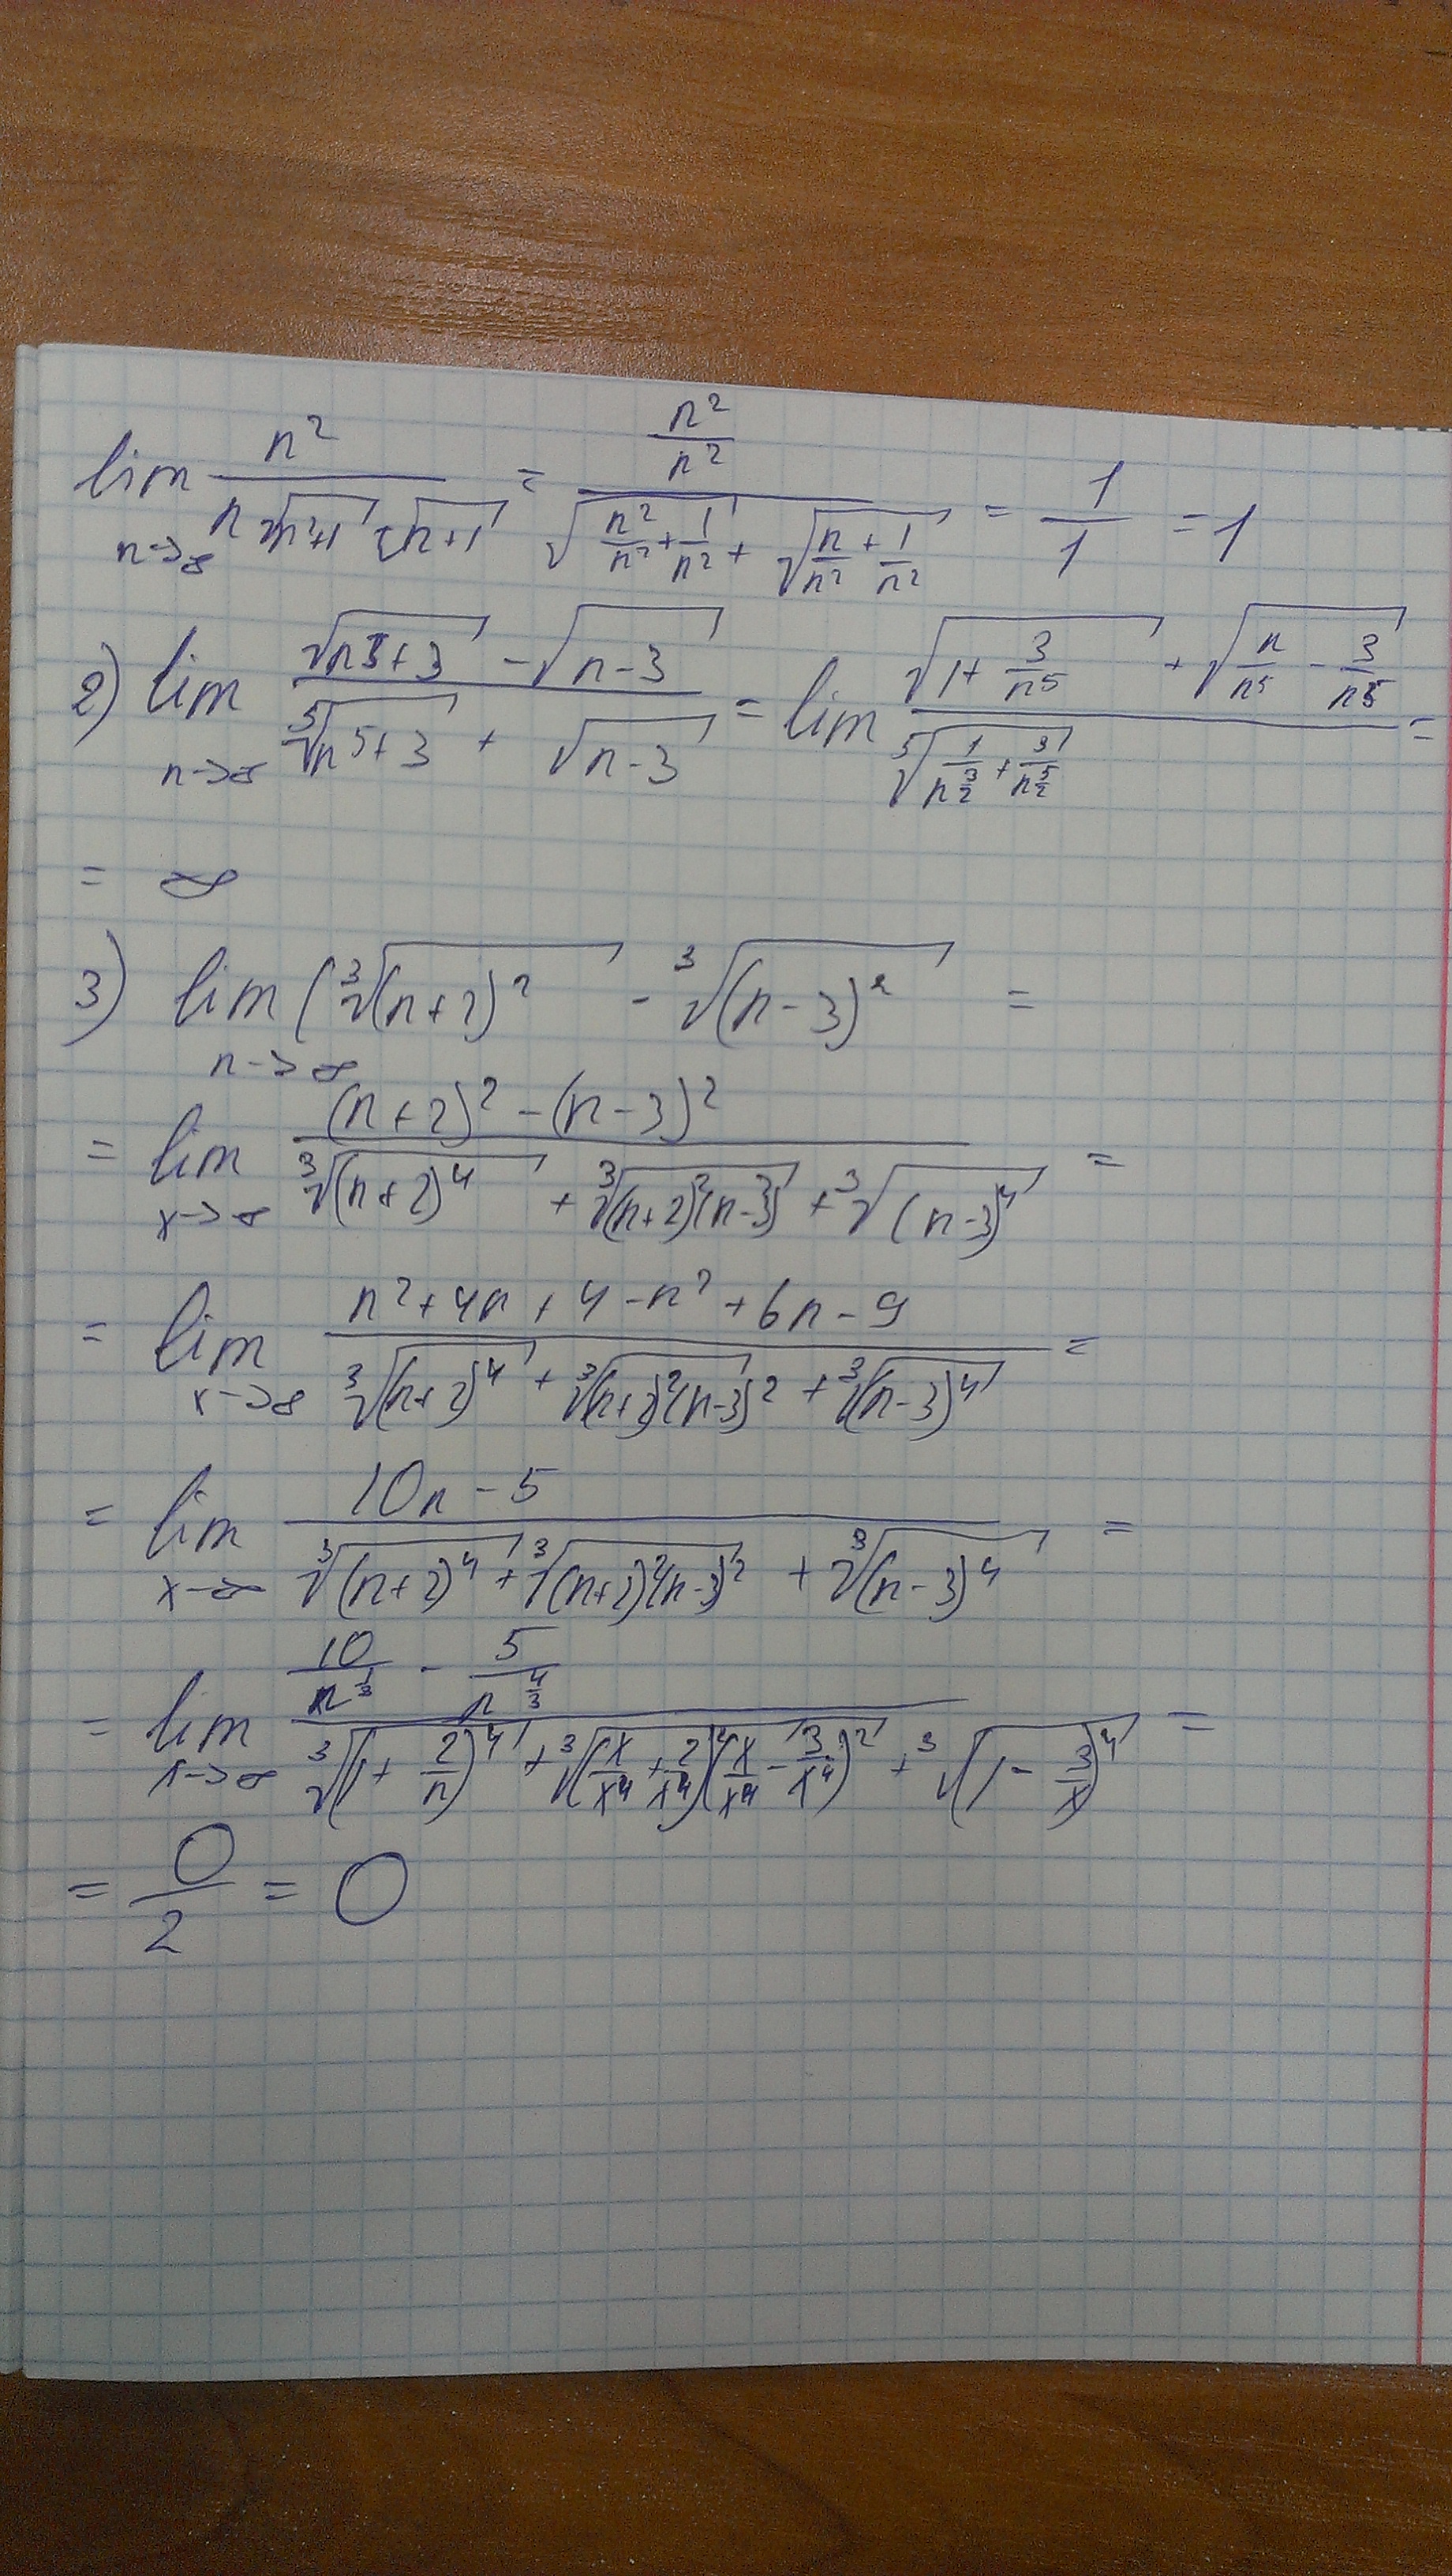 lim n→∞ n²/(n √(n²+1) √(n+1)) = (n²/n²)/(√(n²/n² + 1/n²) + √(n/n² + 1/n²)) = 1/1 = 1
2) lim n→∞ (√(n5+3) - √(n-3))/(⁵√(n⁵+3) + √(n-3)) = lim (√(1+3/n⁵) + √(n/n⁵ - 3/n⁵))/(⁵√(1/n^(3/2) + 3/n^(5/2))) =
= ∞
3) lim n→∞ (³√(n+2)² - ³√(n-3)² =
= lim x→∞ ((n+2)² - (n-3)²)/(³√(n+2)⁴ + ³√(n+2)²(n-3)² + ³√(n-3)⁴) =
= lim x→∞ (n²+4n+4-n²+6n-9)/(³√(n+2)⁴ + ³√(n+2)²(n-3)² + ³√(n-3)⁴) =
= lim x→∞ (10n-5)/(³√(n+2)⁴ + ³√(n+2)²(n-3)² + ³√(n-3)⁴) =
= lim x→∞ (10/n^(1/3) - 5/n^(4/3))/(³√(1+2/n)⁴ + ³√(x/x⁴+2/x⁴)²(x/x⁴-3/x⁴)² + ³√(1-3/x)⁴) =
= 0/2 = 0